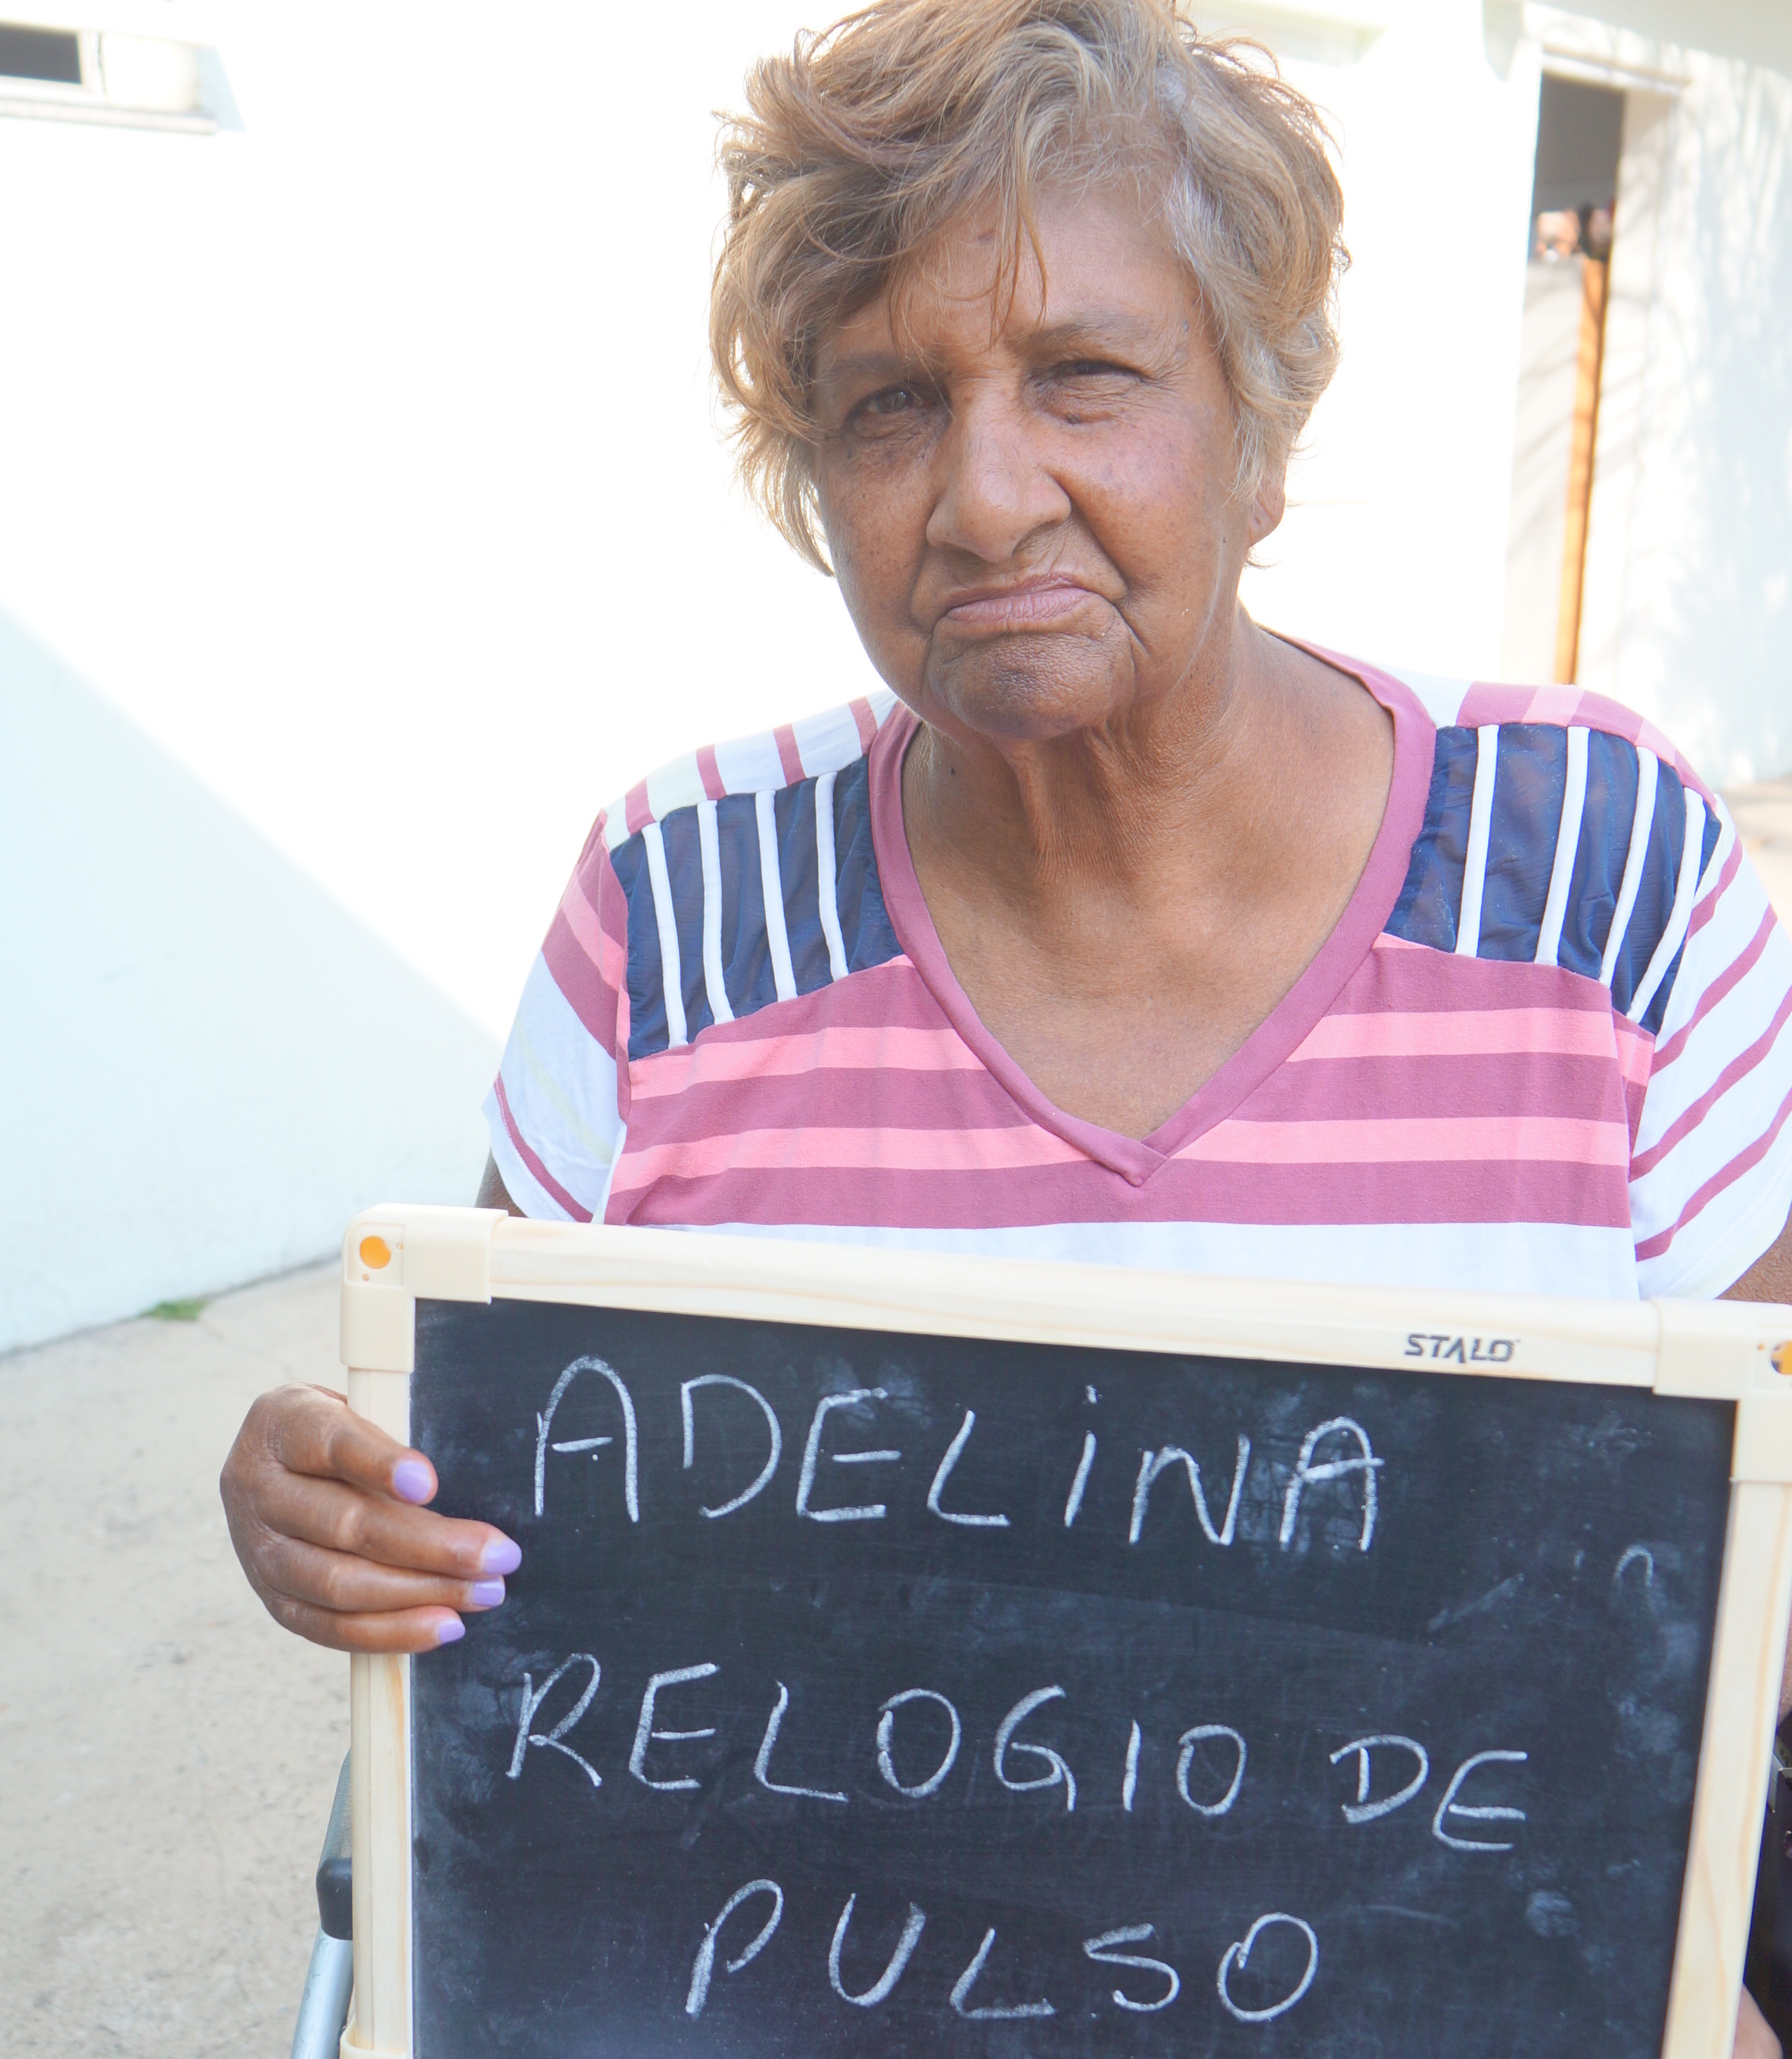 STALO
ADELINA
RELOGIO DE
PULSO